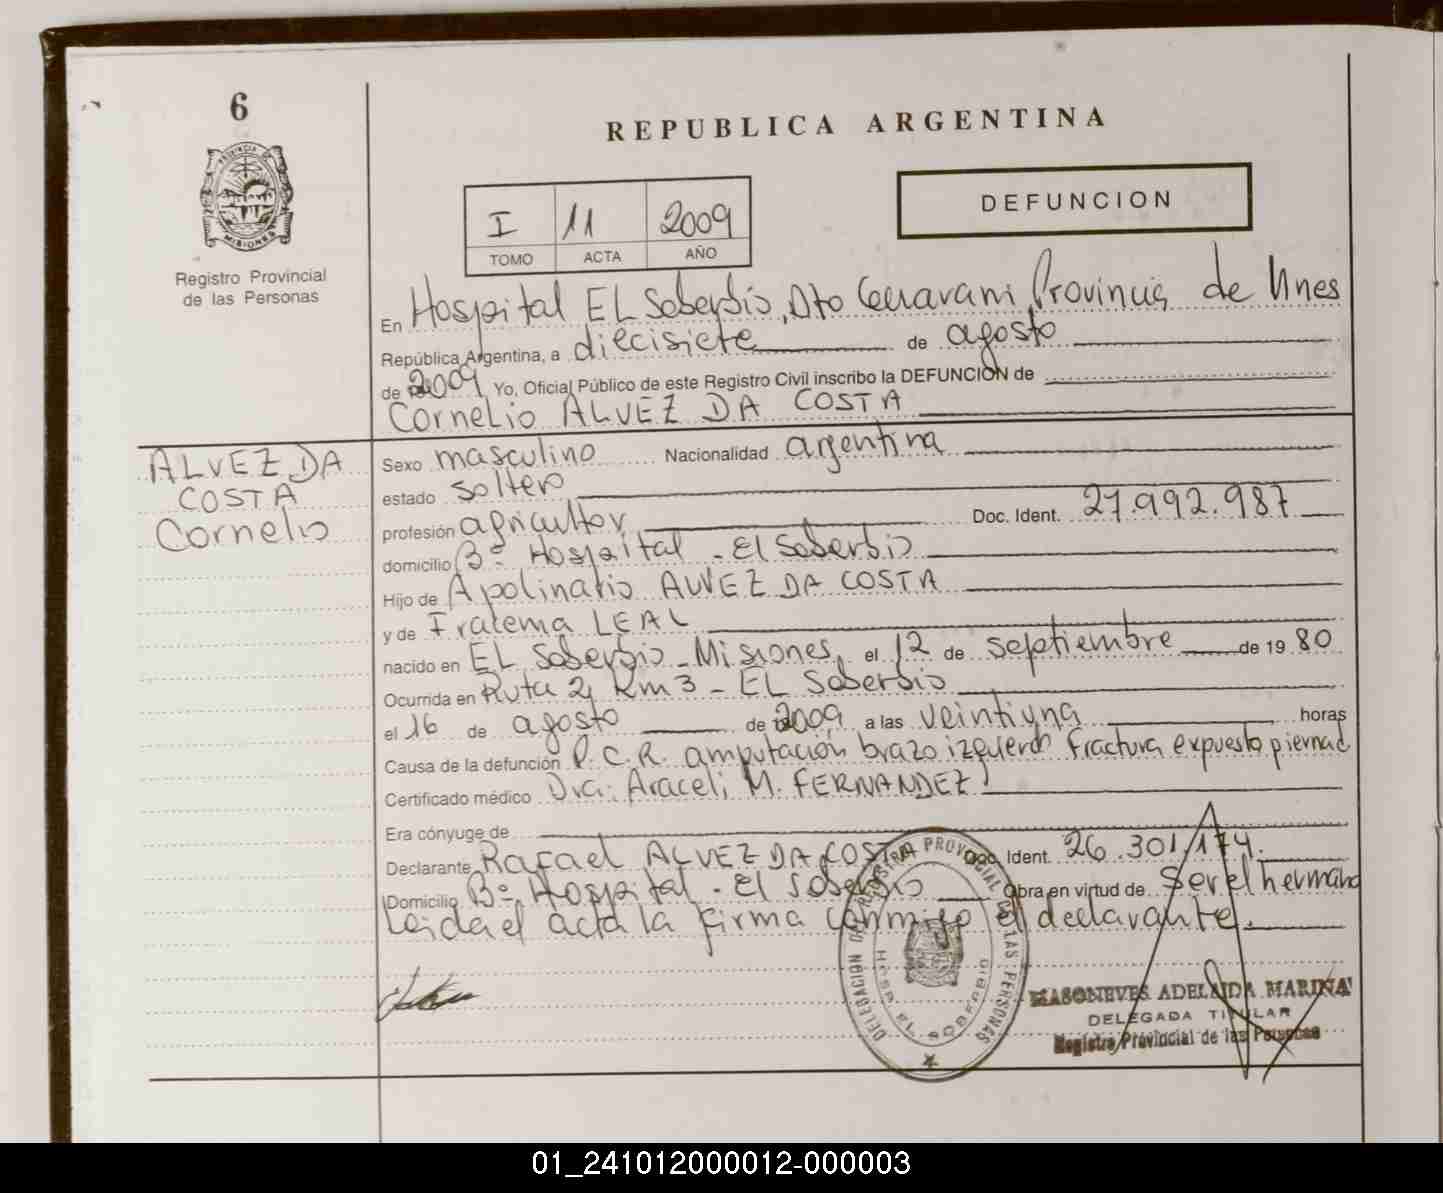 6
REPUBLICA ARGENTINA
PROVINCIA
MISIONES
Registro Provincial
de las Personas
DEFUNCION
I 11 2009
TOMO ACTA AÑO
En Hospital EL Soberbio, Dto Guarani, Provincia de Mnes
República Argentina, a diecisiete de agosto
de 2009 Yo, Oficial Público de este Registro Civil inscribo la DEFUNCION de
Cornelio ALVEZ DA COSTA
ALVEZ DA
COSTA
Cornelio
Sexo masculino Nacionalidad argentina
estado soltero
profesión agricultor Doc. Ident. 27.992.987
domicilio Bº Hospital - El Soberbio
Hijo de Apolinario ALVEZ DA COSTA
y de Iracema LEAL
nacido en EL Soberbio - Misiones, el 12 de septiembre de 1980
Ocurrida en Ruta 2, Km 3 - EL Soberbio
el 16 de agosto de 2009 a las veintiuna horas
Causa de la defunción P.C.R. amputación brazo izquierdo fractura expuesta pierna d
Certificado médico Dra: Araceli M. FERNANDEZ
Era cónyuge de
Declarante Rafael ALVEZ DA COSTA Doc. Ident. 26.301.174.
Domicilio Bº Hospital - El Soberbio Obra en virtud de ser el hermano
Leida el acta la firma conmigo el declarante.
DELEGACION DEL REGISTRO PROVINCIAL DE LAS PERSONAS
HOSP. EL SOBERBIO
MASONEVES ADELAIDA MARINA
DELEGADA TITULAR
Registro Provincial de las Personas
01_241012000012-000003